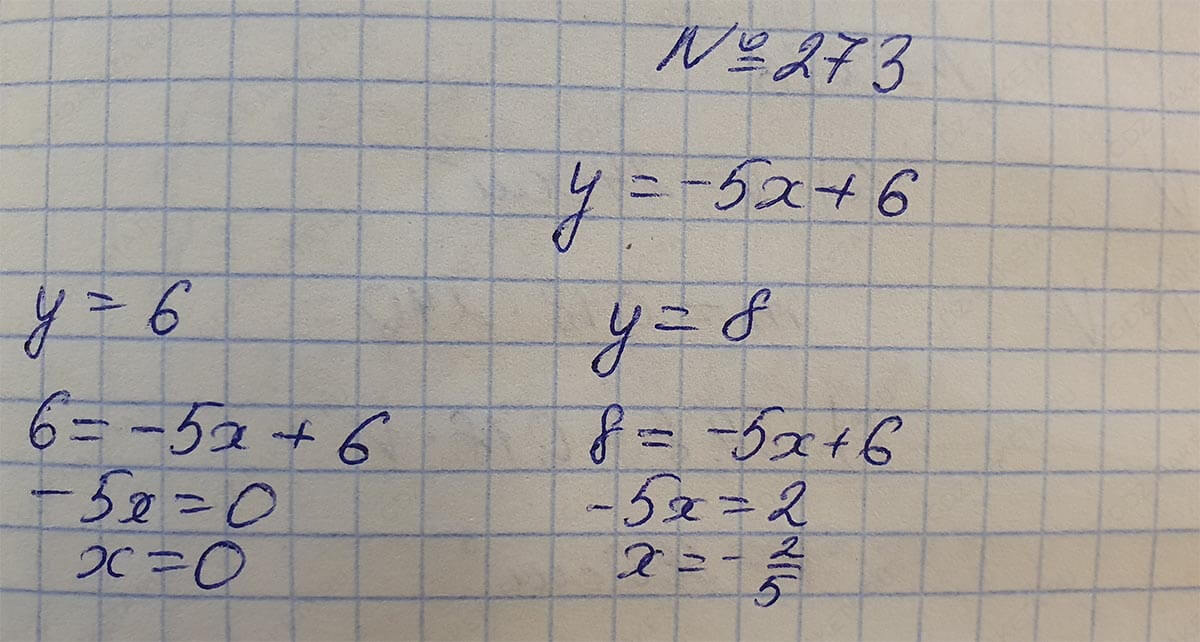 № 273
y = -5x + 6
y = 6
6 = -5x + 6
-5x = 0
x = 0
y = 8
8 = -5x + 6
-5x = 2
x = - 2/5